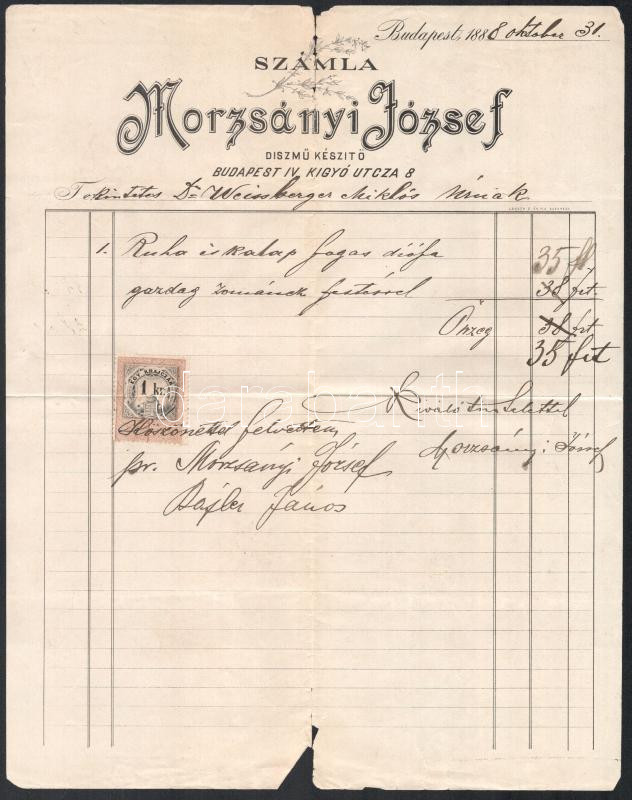 Budapest, 1888 oktober 31.
SZÁMLA
Morzsányi József
DISZMŰ KÉSZITŐ
BUDAPEST IV, KIGYÓ UTCZA 8
Tekintetes Dr Weissberger Miklós Urnak
1. Ruha és kalap fogas diófa 35 ft
gazdag zománcz festéssel 38 frt.
Öszeg 38 frt
35 frt
EGY KRAJCZÁR
1 kr.
Kiváló tisztelettel
Köszönettel felvettem Morzsányi József
pr. Morzsányi József
János
darabanth